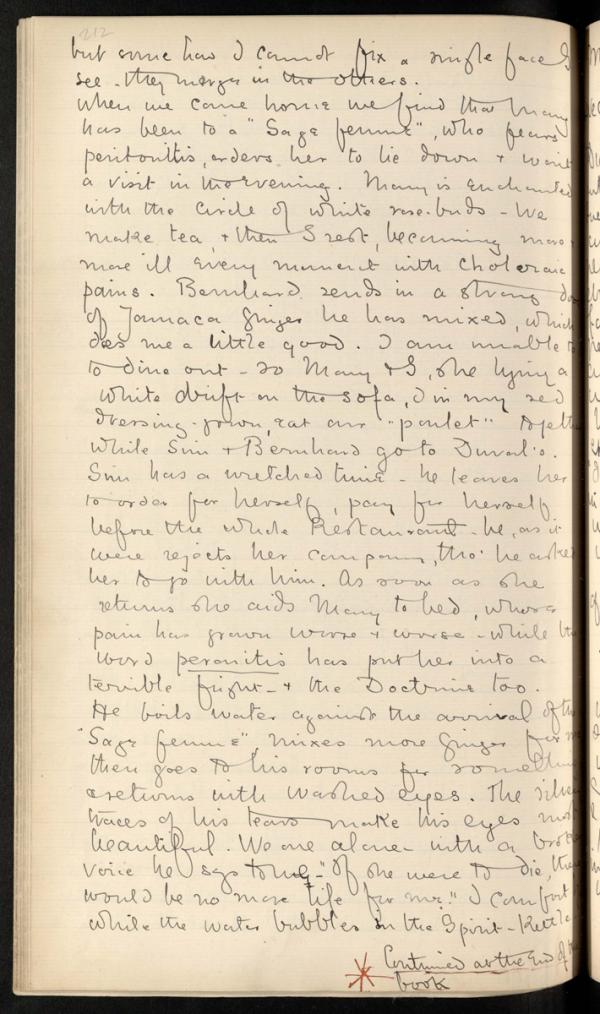 212
but some how I cannot fix a single face I
see - they merge in the others.
When we come home we find that Mary
has been to a "Sage femme", who fears
peritonitis, orders her to lie down & wait
a visit in the evening. Mary is enchanted
with the circle of white rose-buds - We
make tea, & then I rest, becoming more &
more ill every moment with choleraic
pains. Bernhard sends in a strong do
of Jamaca Ginger he has mixed, which
does me a little good. I am unable to
to dine out - so Mary & I, she lying a
white drift on the sofa, I in my red
dressing-gown, eat our "poulet" togeth
while Sim & Bernhard go to Duval's.
Sim has a wretched time - he leaves her
to order for herself, pay for herself
before the whole Restaurant - he, as it
were rejects her company, tho' he asked
her to go with him. As soon as she
returns she aids Mary to bed, whose
pain has grown worse & worse - while the
word peronitis has put her into a
terrible fright - & the Doctrine too.
He boils water against the arrival of the
"Sage femme", mixes more Ginger for m
then goes to his rooms for somethin
& returns with washed eyes. The silver
traces of his tears make his eyes most
beautiful. We are alone - with a brok
voice he says to me - "If she were to die, the
would be no more life for me." I comfort
while the water bubbles in the Spirit-Kettle
Continued at the End of the
book